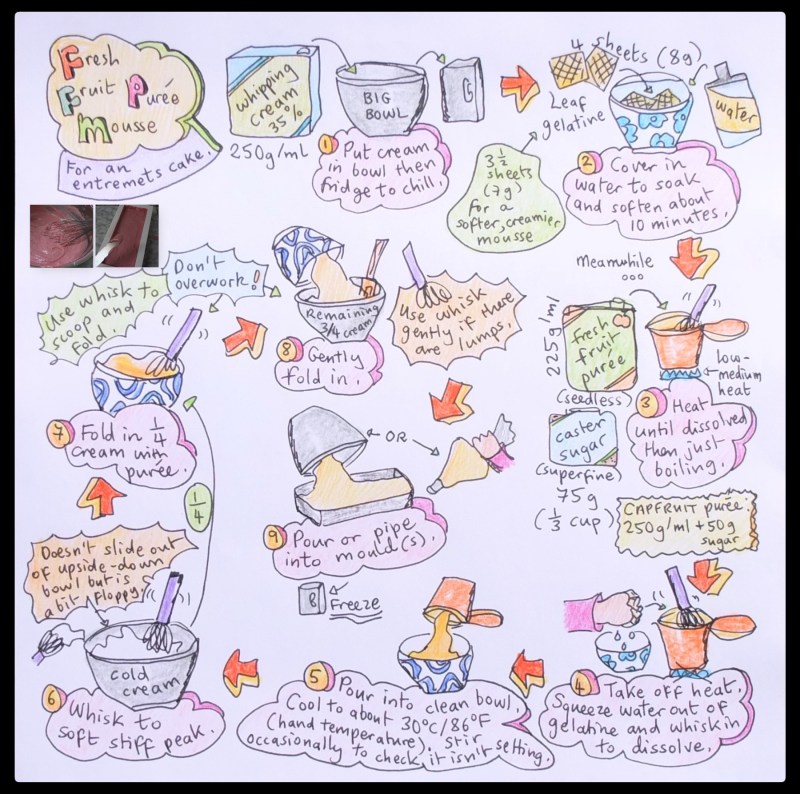 Fresh
Fruit Purée
Mousse
For an
entremets cake.
whipping
cream
35%
250g/ml
BIG
BOWL
1 Put cream
in bowl then
fridge to chill.
4 sheets (8g)
Leaf
gelatine
water
3 1/2
sheets
(7g)
for a
softer, creamier
mousse
2 Cover in
water to soak
and soften about
10 minutes.
Meanwhile
ooo
225g/ml
fresh
fruit
purée
(seedless)
caster
sugar
(superfine)
75g
(1/3 cup)
low-
medium
heat
3 Heat
until dissolved
then just
boiling.
CAPFRUIT purée:
250g/ml + 50g
sugar
4 Take off heat.
Squeeze water out of
gelatine and whisk in
to dissolve.
5 Pour into clean bowl.
Cool to about 30°C/86°F
(hand temperature). Stir
occasionally to check it isn't setting.
Doesn't slide out
of upside-down
bowl but is
a bit floppy.
cold
cream
6 Whisk to
soft stiff peak.
1/4
Use whisk to
scoop and
fold.
Don't
overwork!
7 Fold in 1/4
cream with
purée.
Remaining
3/4 cream
8 Gently
fold in.
Use whisk
gently if there
are lumps.
OR
9 Pour or pipe
into mould(s).
Freeze